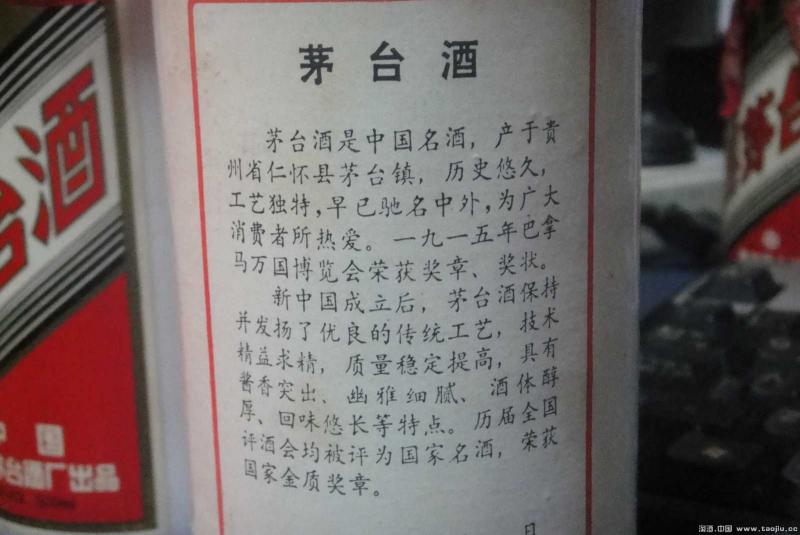 茅台酒
茅台酒是中国名酒，产于贵
州省仁怀县茅台镇，历史悠久，
工艺独特，早已驰名中外，为广大
消费者所热爱。一九一五年巴拿
马万国博览会荣获奖章、奖状。
新中国成立后，茅台酒保持
并发扬了优良的传统工艺，技术
精益求精，质量稳定提高，具有
酱香突出、幽雅细腻、酒体醇
厚、回味悠长等特点。历届全国
评酒会均被评为国家名酒，荣获
国家金质奖章。
日
台酒
国
台酒厂出品
淘酒.中国 www.taojiu.cc